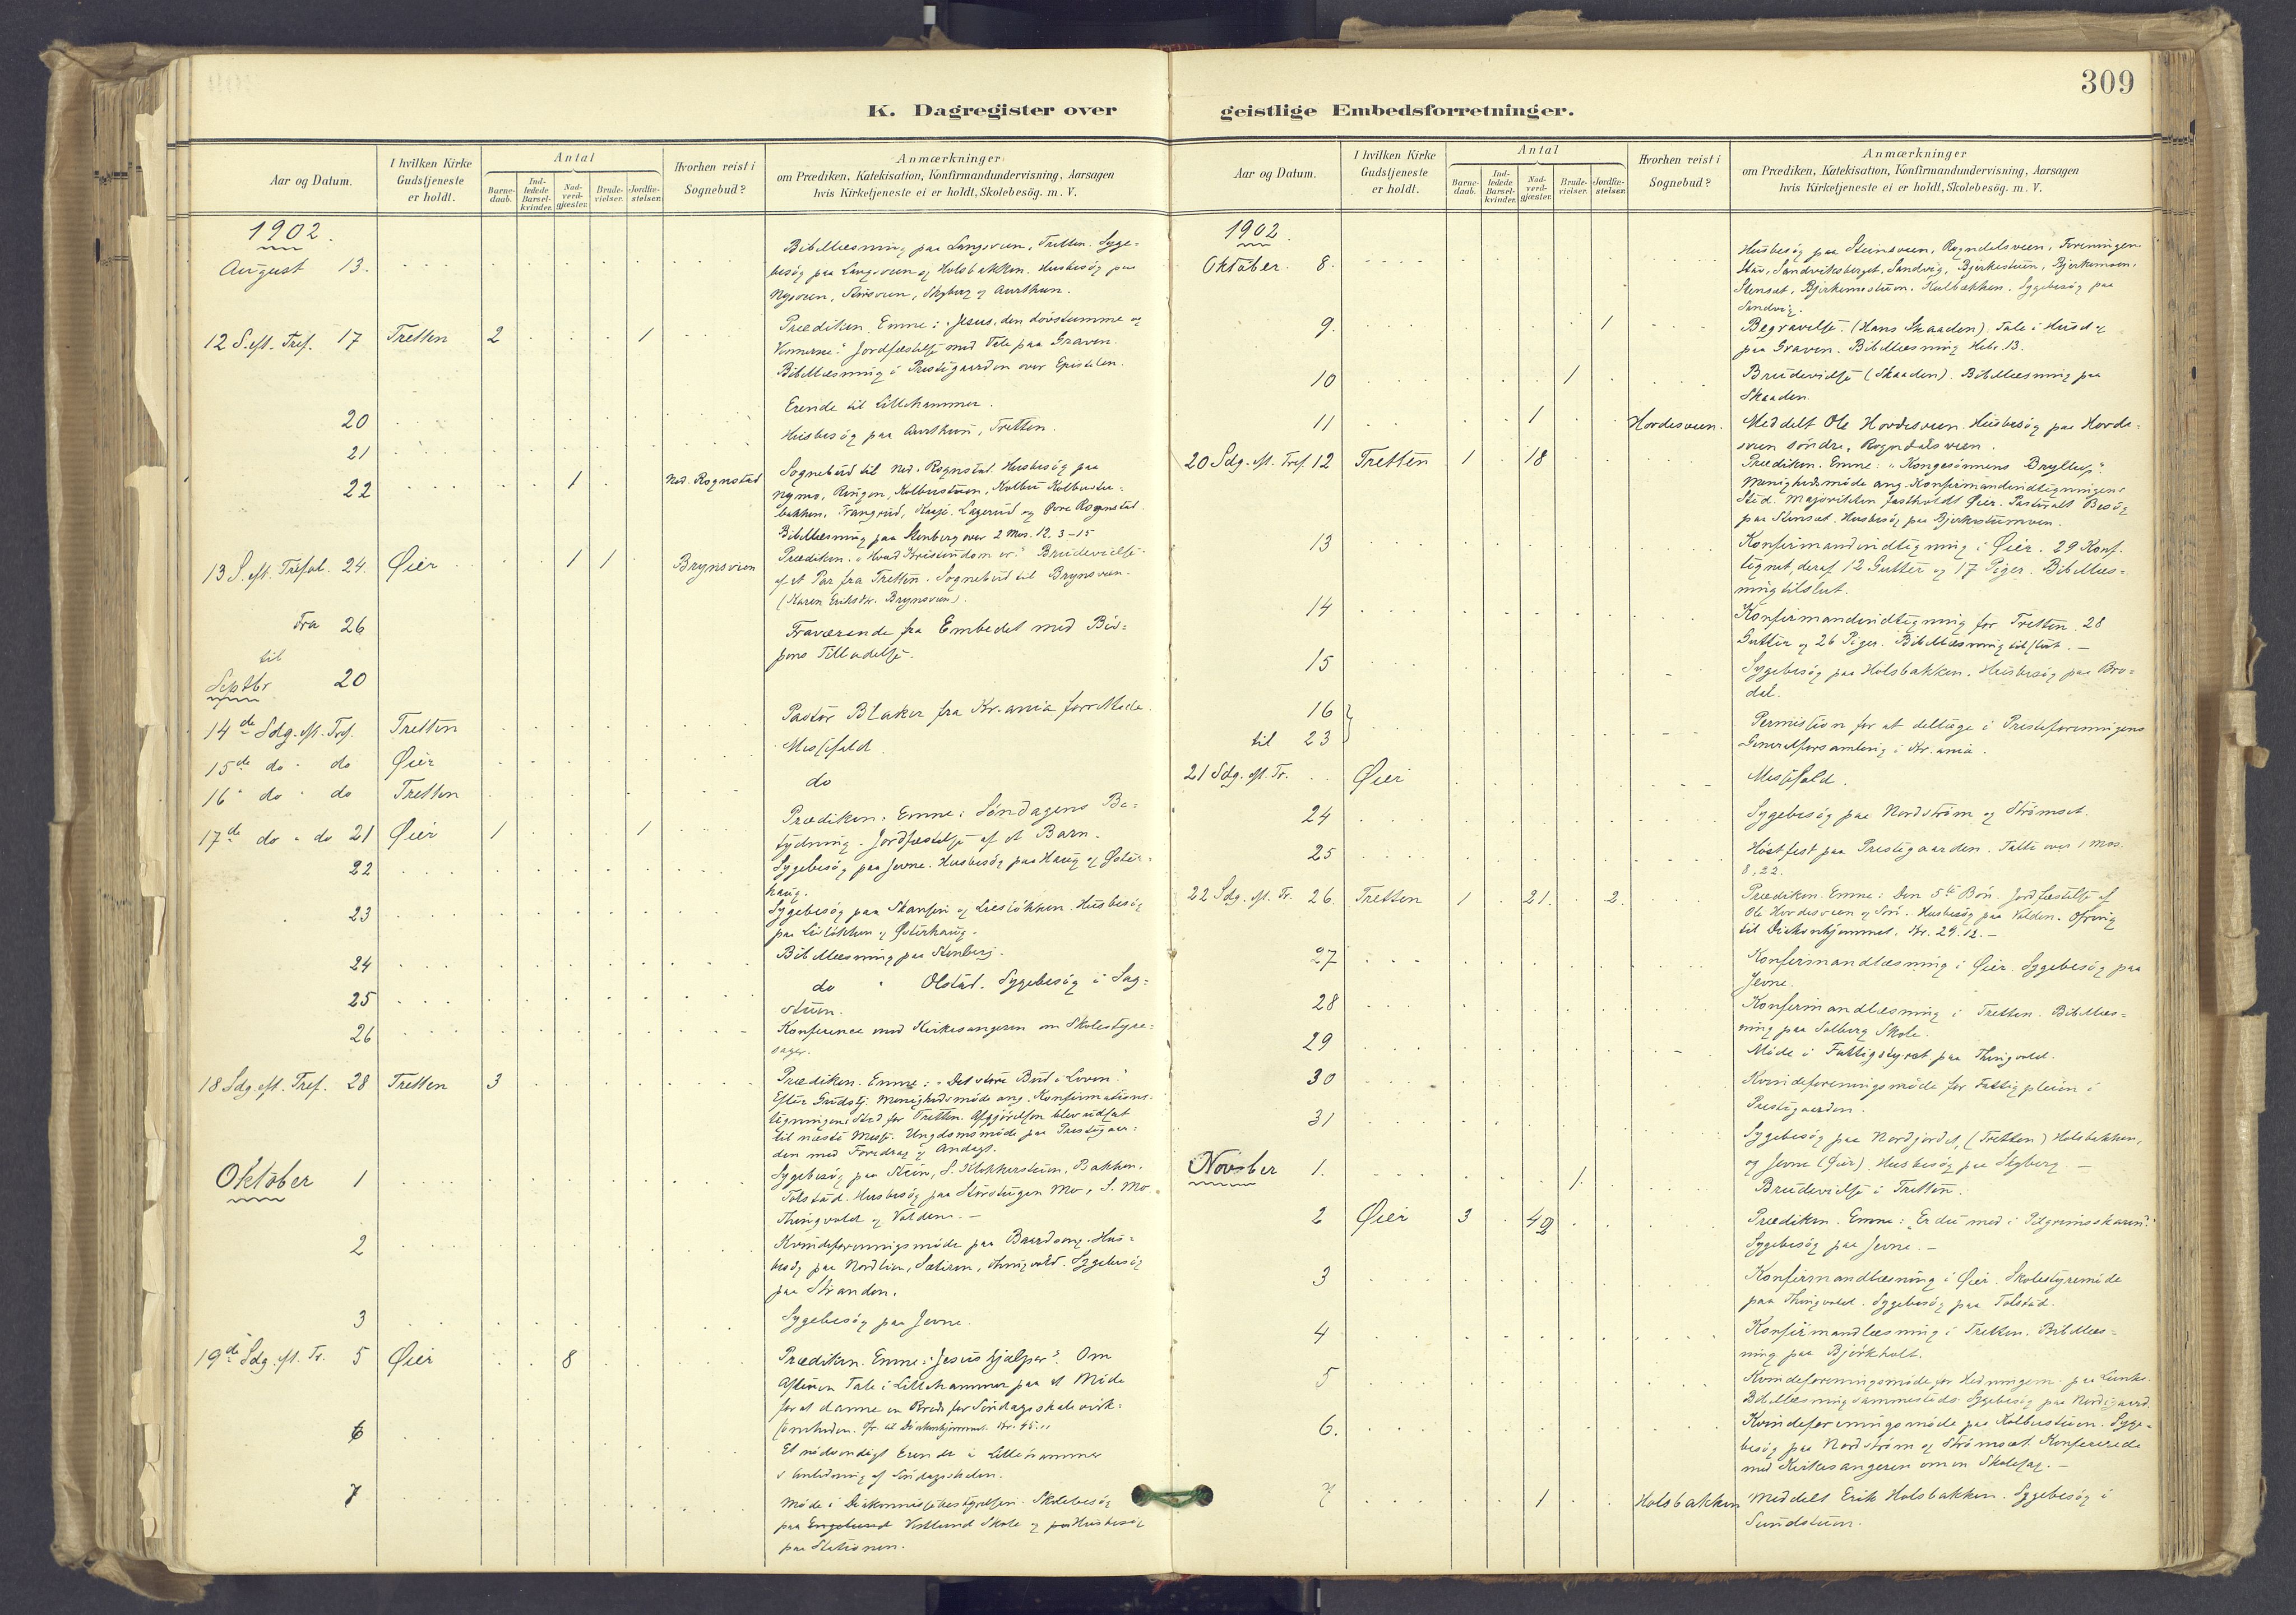 309
K. Dagregister over geistlige Embedsforretninger.
Aar og Datum.
I hvilken Kirke Gudstjeneste er holdt.
Antal
Barne-daab.
Ind-ledede Barsel-kvinder.
Nad-verd-gjæster.
Brude-vielser.
Jordfæ-stelser.
Hvorhen reist i Sognebud?
Anmærkninger
om Prædiken, Katekisation, Konfirmandundervisning, Aarsagen
hvis Kirketjeneste ei er holdt, Skolebesög. m. V.
1902.
August 13. Bibellæsning paa Langsveen, Tretten. Syge-
besög paa Langsveen og Holsbakken. Husbesög paa
Nysveen, Skyberg og Aurthun.
12 S. eft. Tref. 17 Tretten 2 1 Prædiken. Emne: "Jesus, den dövstumme og
Vennerne". Jordfæstelse med Tale paa Graven.
Bibellæsning i Prestegaarden over Epistelen.
20 Erende til Lillehammer.
21 Husbesög paa Aurthun, Tretten.
22 1 Ned. Rognstad Sognebud til Ned. Rognstad. Husbesög paa
Nymo, Ringen, Kolbustuen, Kolbu Kolbustu-
bakken, Trangrud, Lagerud og Övre Rognstad.
Bibellæsning paa Stenberg over 2 Mos. 12, 3-15
13 S. eft. Trefol. 24. Øier 1 1 Brynsveen Prædiken. "Hvad Kristendom er." Brudevielse
af et Par fra Tretten. Sognebud til Brynsveen.
(Karen Eriksdr. Brynsveen).
Fra 26 Fraværende fra Embedet med Bis-
til pens Tilladelse.
Septbr 20
14de Sdg. eft. Tref. Tretten Pastor Blaker fra Kr.ania forrettede.
15de do - do Øier Messefald.
16 do - do Tretten do
17de do - do 21 Øier 1 1 Prædiken. Emne: Söndagens Be-
tydning. Jordfæstelse af et Barn.
22 Sygebesög paa Jevne. Husbesög paa Haug og Öster-
haug.
23 Sygebesög paa Skansen og Lieslökken. Husbesög
paa Lieslökken og Österhaug.
24 Bibellæsning paa Stenberg.
25 do " Olstad. Sygebesög i Sag-
stuen.
26 Konference med Kirkesangeren om Skolestyre-
sager.
18 Sdg. eft. Tref. 28 Tretten 3 Prædiken. Emne: "Det store Bud i Loven."
Efter Gudstj. Menighedsmöde ang. Konfirmations-
tegningens Sted for Tretten. Afgjörelsen blev udsat
til næste Messe. Ungdomsmöde paa Prestegaar-
den med Foredrag og Andagt.
Oktober 1 Sygebesög paa Stein, S. Klokkerstuen, Bakken,
Tolstad. Husbesög paa Storstugen Mo, S. Mo
Thingvold og Volden. —
2 Kvindeforeningsmöde paa Baardseng. Hus-
besög paa Nordlien, Thingvold. Sygebesög
paa Stranden.
3 Sygebesög paa Jevne.
19de Sdg. eft. Tr. 5 Øier 8 Prædiken. Emne: "Jesus hjælper". Om
Aftenen Tale i Lillehammer paa et Möde
for at danne en Kreds for Söndagsskolevirk-
somheden. Ofr. til Diakonhjemmet. Kr. 45.11
6 Et nödvendigt Erende i Lillehammer
i Anledning af Söndagsskolen.
7 Möde i Diakonissebestyrelsen. Skolebesög
paa Vestlund Skole og Husbesög
paa Stationen.
1902.
Oktober. 8. Husbesög paa Steinsveen, Rogndalsveen,
Sandviksberget, Sandvig, Bjerkestuen, Bjerkemoen,
Stensæt, Bjerkemostuen, Kulbækken. Sygebesög paa
Sandvig.
9. 1 Begravelse. (Hans Skaaden). Tale i Hus og
paa Graven. Bibellæsning Hebr. 13.
10 1 Brudevielse (Skaaden). Bibellæsning paa
Skaaden.
11 1 Hordesveen. Meddelt Ole Hordesveen. Husbesög paa Horde-
sveen söndre, Rogndalsveen.
20 Sdg. eft. Tref. 12 Tretten 1 18 Prædiken. Emne: "Kongesönnens Bryllup".
Menighedsmöde ang. Konfirmandindtegningens
Sted. Majoriteten fastholdt Øier. Pastoralt Besög
paa Stensæt. Husbesög paa Bjerkestumoen.
13 Konfirmandindtegning i Øier. 29 Konf.
tegnet, deraf 12 Gutter og 17 Piger. Bibellæs-
ning tilslut.
14 Konfirmandindtegning for Tretten. 28
Gutter og 26 Piger. Bibellæsning tilslut. —
15 Sygebesög paa Holsbakken. Husbesög paa Bro-
dal.
16
til 23 Permission for at deltage i Presteforeningens
Generalforsamling i Kr.ania.
21 Sdg. eft. Tr. Øier Messefald.
24 Sygebesög paa Nordström og Strömset.
25 Höstfest paa Prestegaarden. Talte over 1 Mos.
8, 22.
22 Sdg. eft. Tr. 26. Tretten 1 21. 2. Prædiken. Emne: Den 5te Bön. Jordfæstelse af
Ole Hordesveen og Husbesög paa Volden. Ofring
til Diakonhjemmet. Kr. 29.12. —
27 Konfirmandlæsning i Øier. Sygebesög paa
Jevne.
28 Konfirmandlæsning i Tretten. Bibellæs-
ning paa Solberg Skole.
29 Möde i Fattigstyret paa Thingvold.
30 Kvindeforeningsmöde for Fattigpleien i
Prestegaarden.
31 Sygebesög paa Nordjordet, (Tretten) Holsbakken,
og Jevne (Øier). Husbesög paa Skyberg. —
Novber 1. 1. Brudevielse i Tretten.
2 Øier 3 42 Prædiken. Emne: "Er du med i Pilgrimsskaren?"
Sygebesög paa Jevne. —
3 Konfirmandlæsning i Øier. Skolestyremöde
paa Thingvold. Sygebesög paa Tolstad.
4 Konfirmandlæsning i Tretten. Bibellæs-
ning paa Björkholt.
5 Kvindeforeningsmöde for Hedningem. paa
Bibellæsning sammesteds. Sygebesög paa Nordigaard.
6. Kvindeforeningsmöde paa Kolbustuen. Syge-
besög paa Nordström og Strömset. Konfererede
med Kirkesangeren om en Skolesag. —
7 1 Holsbakken Meddelt Erik Holsbakken. Sygebesög i
Sundstuen.